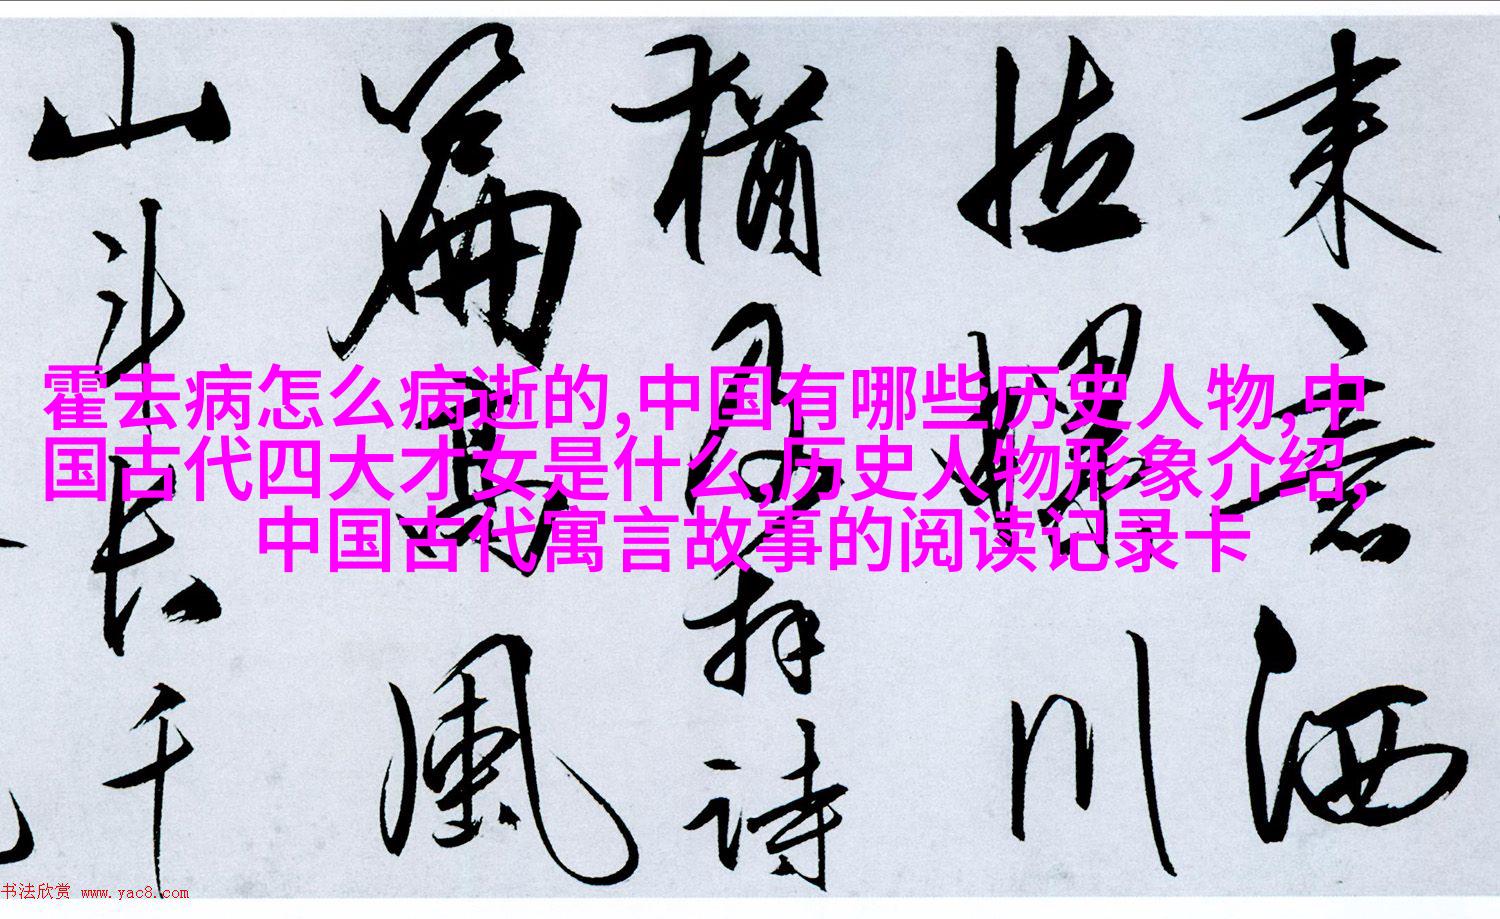 霍去病怎么病逝的,中国有哪些历史人物,中
国古代四大才女是什么,历史人物形象介绍,
中国古代寓言故事的阅读记录卡
来意洒
川
犹及拜诗
篇高风
山斗长千
书法欣赏 www.yac8.com